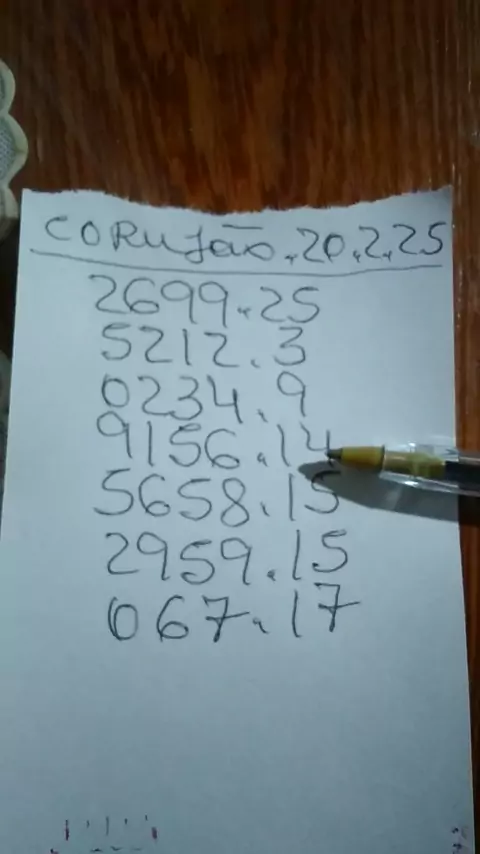 CORUJÃO.20.2.25
2699.25
5212.3
0234.9
9156.14
5658.15
2959.15
067.17